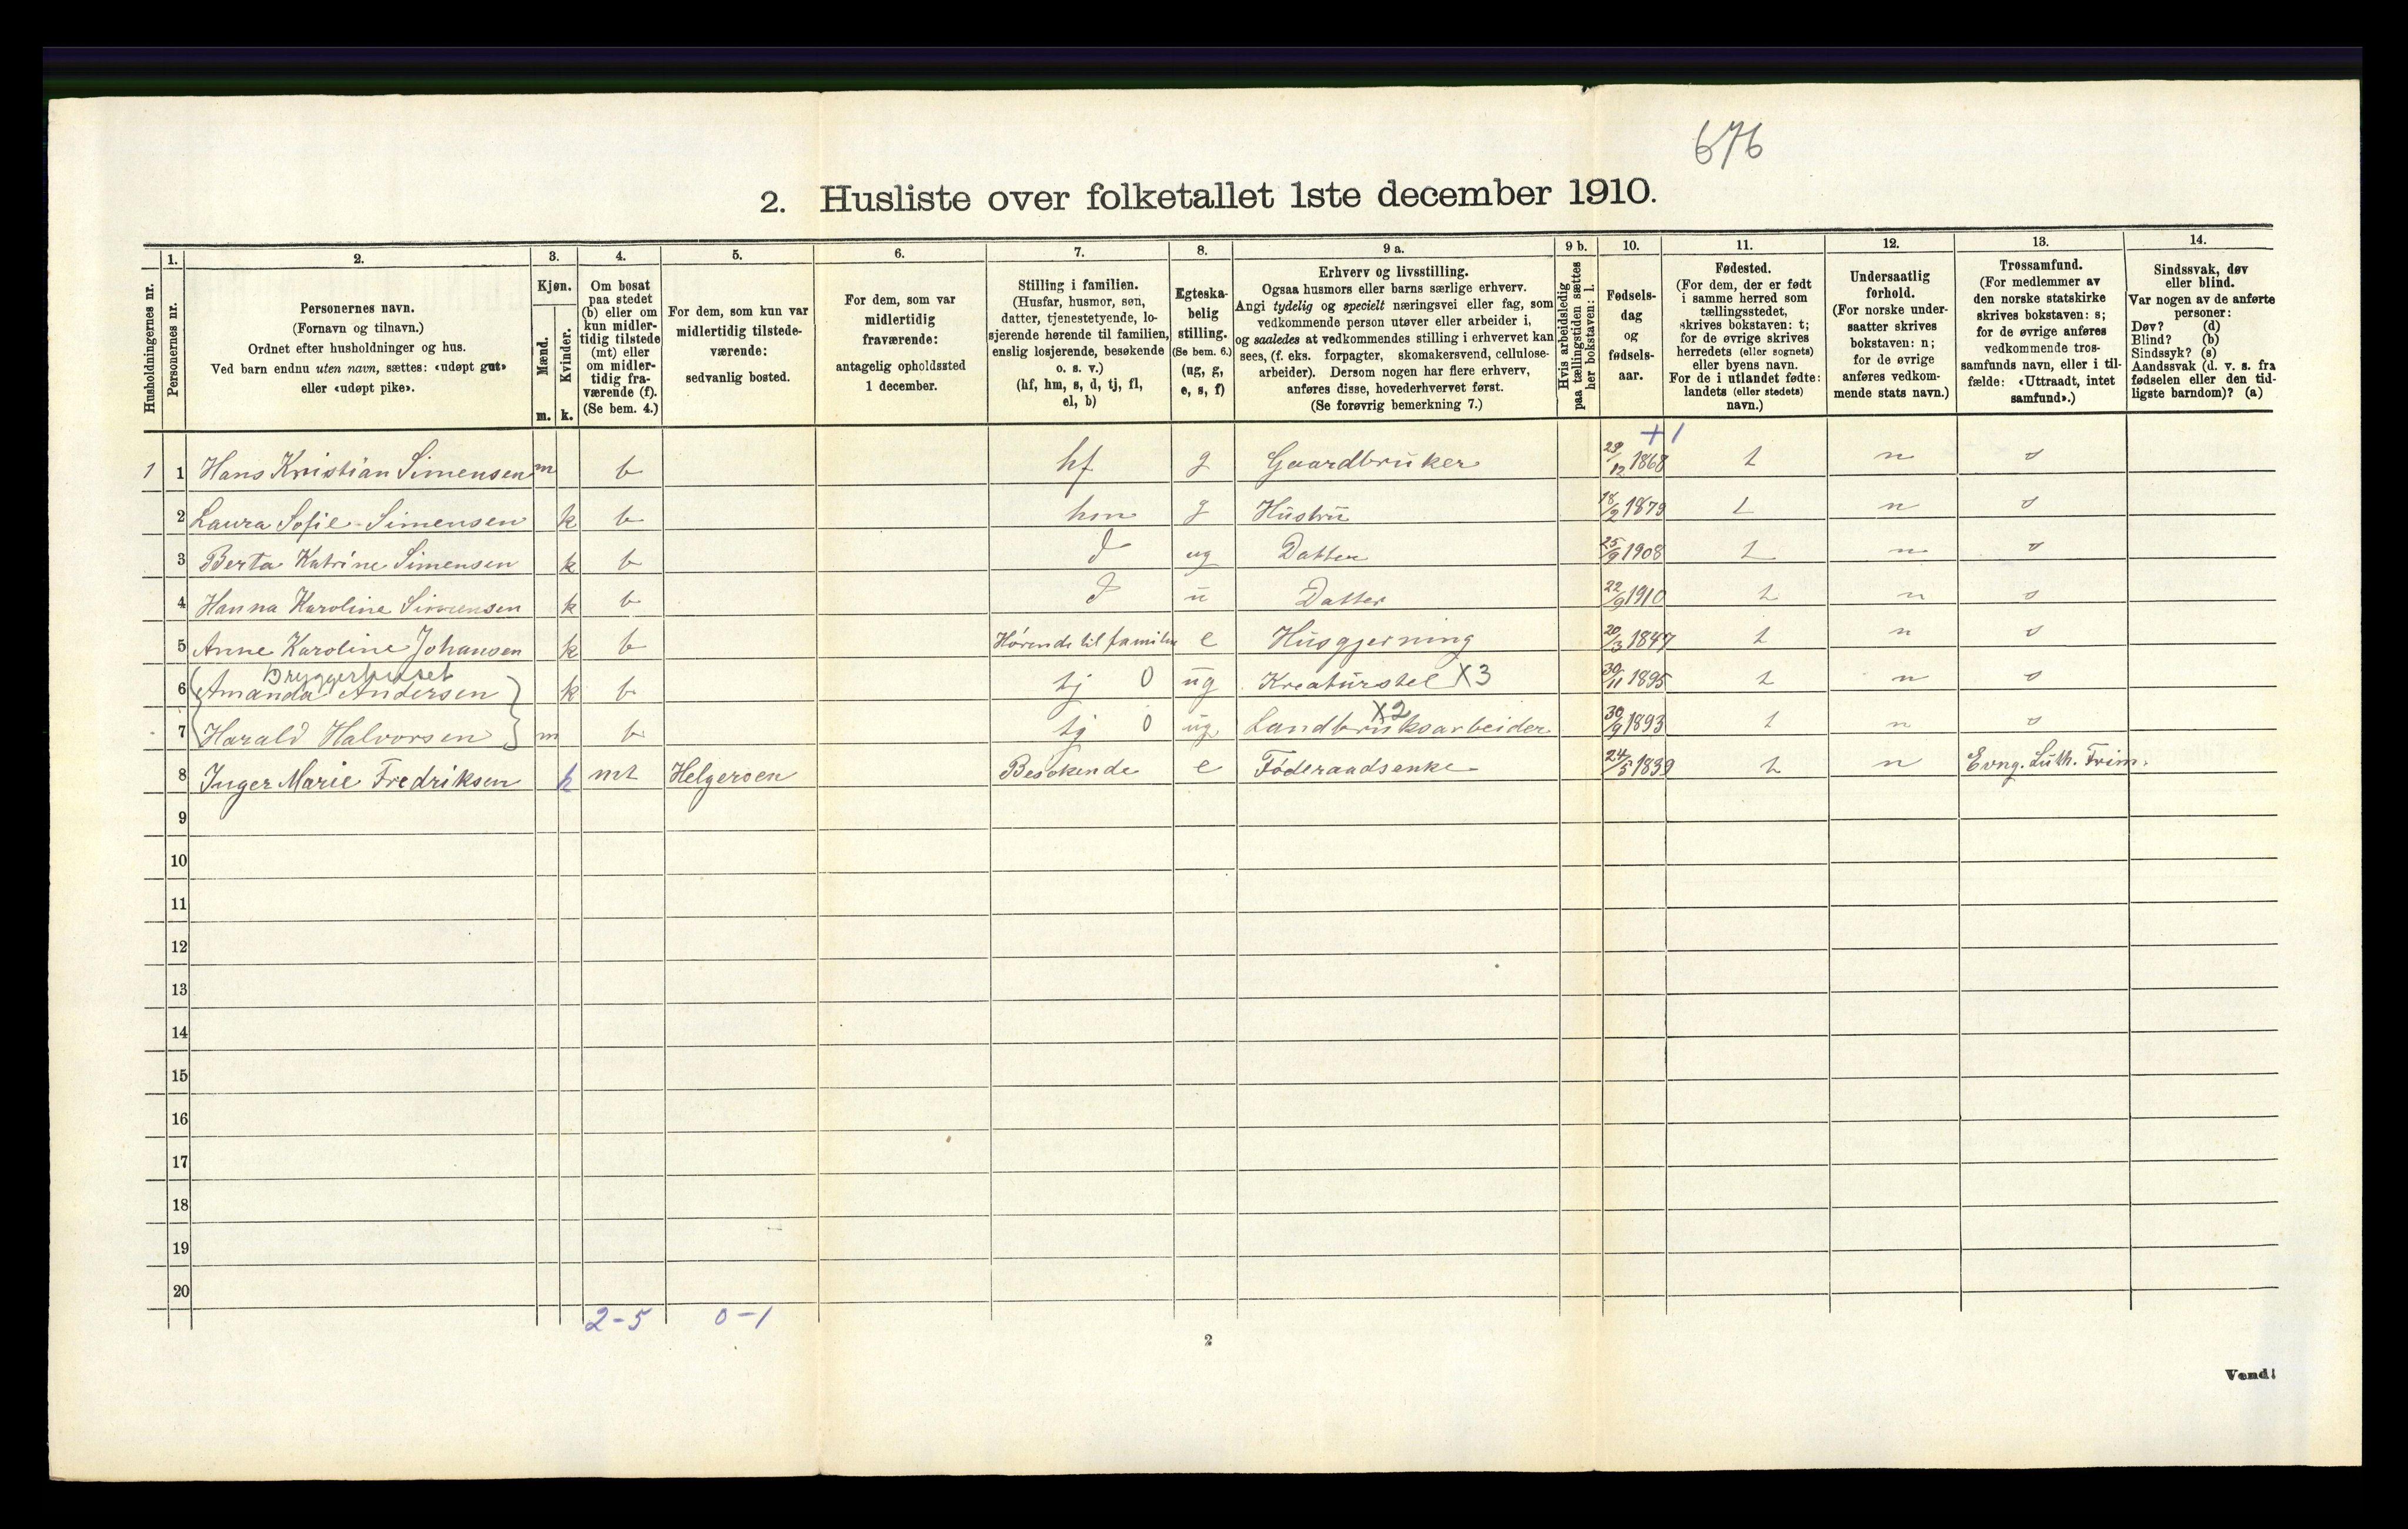 676
2. Husliste over folketallet 1ste december 1910.
Husholdningernes nr.
1.
Personernes nr.
2.
Personernes navn.
(Fornavn og tilnavn.)
Ordnet efter husholdninger og hus.
Ved barn endnu uten navn, sættes: «udøpt gut»
eller «udøpt pike».
3.
Kjøn.
Mænd.
m.
Kvinder.
k.
4.
Om bosat
paa stedet
(b) eller om
kun midler-
tidig tilstede
(mt) eller
om midler-
tidig fra-
værende (f).
(Se bem. 4.)
5.
For dem, som kun var
midlertidig tilstede-
værende:
sedvanlig bosted.
6.
For dem, som var
midlertidig
fraværende:
antagelig opholdssted
1 december.
7.
Stilling i familien.
(Husfar, husmor, søn,
datter, tjenestetyende, lo-
sjerende hørende til familien,
enslig losjerende, besøkende
o. s. v.)
(hf, hm, s, d, tj, fl,
el, b)
8.
Egteska-
belig
stilling.
(Se bem. 6.)
(ug, g,
e, s, f)
9 a.
Erhverv og livsstilling.
Ogsaa husmors eller barns særlige erhverv.
Angi tydelig og specielt næringsvei eller fag, som
vedkommende person utøver eller arbeider i,
og saaledes at vedkommendes stilling i erhvervet kan
sees, (f. eks. forpagter, skomakersvend, cellulose-
arbeider). Dersom nogen har flere erhverv,
anføres disse, hovederhvervet først.
(Se forøvrig bemerkning 7.)
9 b.
Hvis arbeidsledig
paa tællingstiden sættes
her bokstaven: l.
10.
Fødsels-
dag
og
fødsels-
aar.
11.
Fødested.
(For dem, der er født
i samme herred som
tællingsstedet,
skrives bokstaven: t;
for de øvrige skrives
herredets (eller sognets)
eller byens navn.
For de i utlandet fødte:
landets (eller stedets)
navn.)
12.
Undersaatlig
forhold.
(For norske under-
saatter skrives
bokstaven: n;
for de øvrige
anføres vedkom-
mende stats navn.)
13.
Trossamfund.
(For medlemmer av
den norske statskirke
skrives bokstaven: s;
for de øvrige anføres
vedkommende tros-
samfunds navn, eller i til-
fælde: «Uttraadt, intet
samfund».)
14.
Sindssvak, døv
eller blind.
Var nogen av de anførte
personer:
Døv? (d)
Blind? (b)
Sindssyk? (s)
Aandssvak (d. v. s. fra
fødselen eller den tid-
ligste barndom)? (a)
+1
1 1 Hans Kristian Simensen m b hf g Gaardbruker 29/12 1868 t n s
2 Laura Sofie Simensen k b hm g Hustru 18/2 1879 t n s
3 Berta Katrine Simensen k b d ug Datter 25/9 1908 t n s
4 Hanna Karoline Simensen k b d u Datter 22/9 1910 t n s
5 Anne Karoline Johansen k b Hørende til familien e Husgjerning 20/3 1847 t n s
Bryggerhuset
6 (Amanda Andersen) k b tj 0 ug Kreaturstel X3 30/11 1895 t n s
X2
7 (Harald Halvorsen) m b tj 0 ug Landbruksarbeider 30/9 1893 t n s
8 Inger Marie Fredriksen k mt Helgeroen Besøkende e Føderaadsenke 24/5 1839 t n Evng. Luth. Frim.
9
10
11
12
13
14
15
16
17
18
19
20
2-5 0-1
2
Vend!